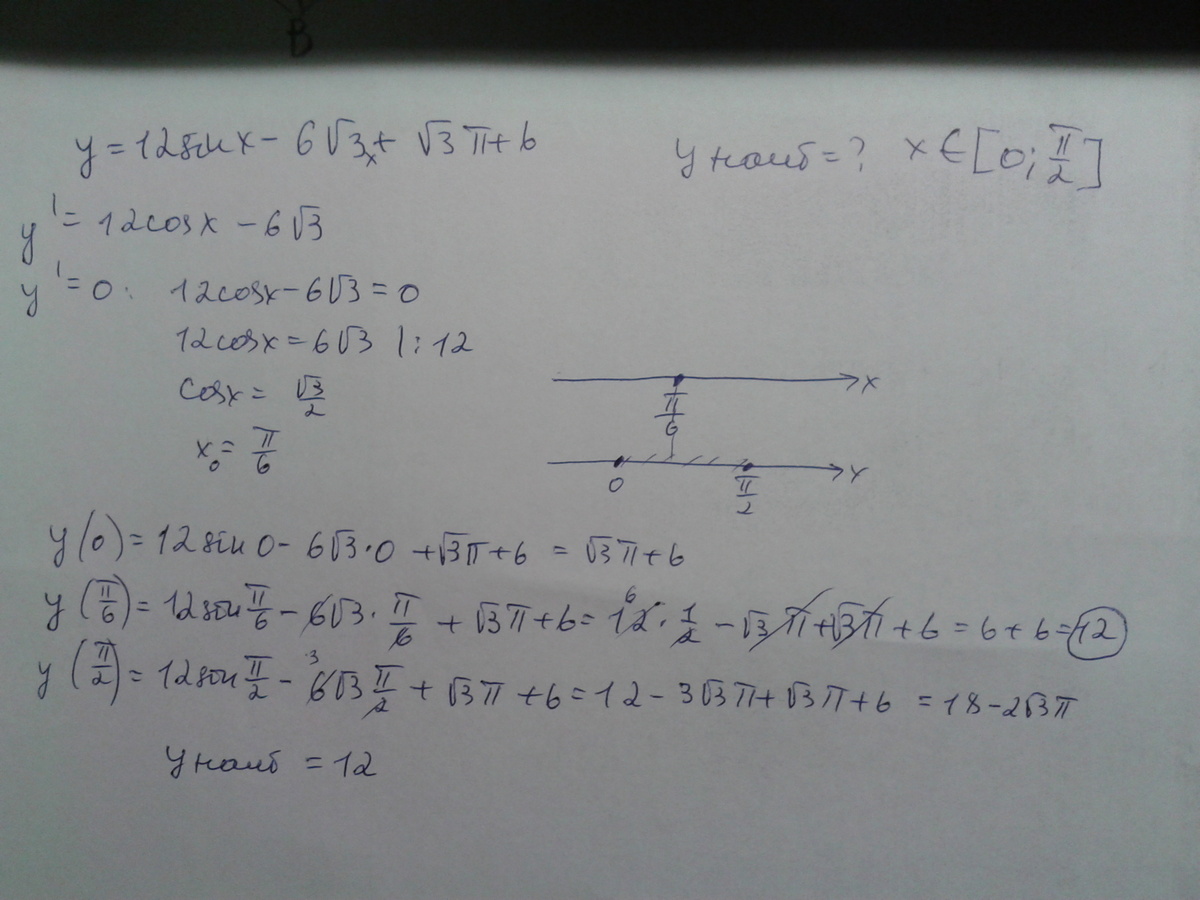 B
y = 12sinx - 6√3x + √3π + 6 y наиб = ? x ∈ [0; π/2]
y' = 12cosx - 6√3
y' = 0: 12cosx - 6√3 = 0
12cosx = 6√3 |: 12
cosx = √3/2
x₀ = π/6
π/6 x
0 π/2 x
y(0) = 12sin0 - 6√3·0 + √3π + 6 = √3π + 6
y(π/6) = 12sin π/6 - 6√3 · π/6 + √3π + 6 = 12 6 · 1/2 - √3π + √3π + 6 = 6 + 6 = 12
y(π/2) = 12sin π/2 - 6 3 √3 π/2 + √3π + 6 = 12 - 3√3π + √3π + 6 = 18 - 2√3π
y наиб = 12